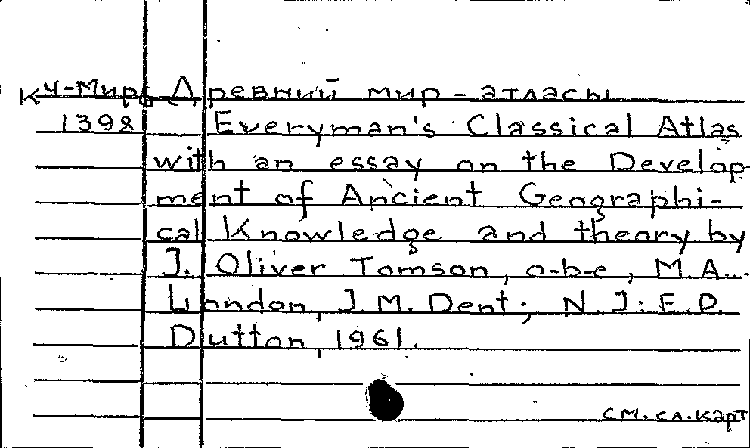 Кч-Мир Древний мир - атласы
1398 Everyman's Classical Atlas
with an essay on the Develop
ment of Ancient Geographi-
cal Knowledge and theory by
J. Oliver Tomson, o-b-e, M.A...
London, J.M. Dent; N.J: E.P.
Dutton, 1961.
см. сл. карт